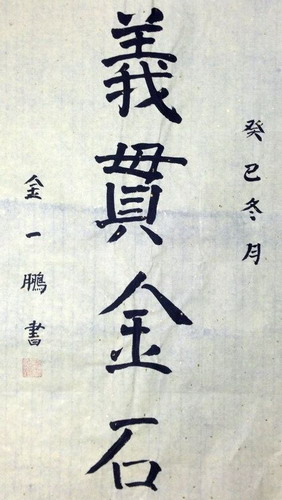 癸巳冬月
義貫金石
金一鵬書